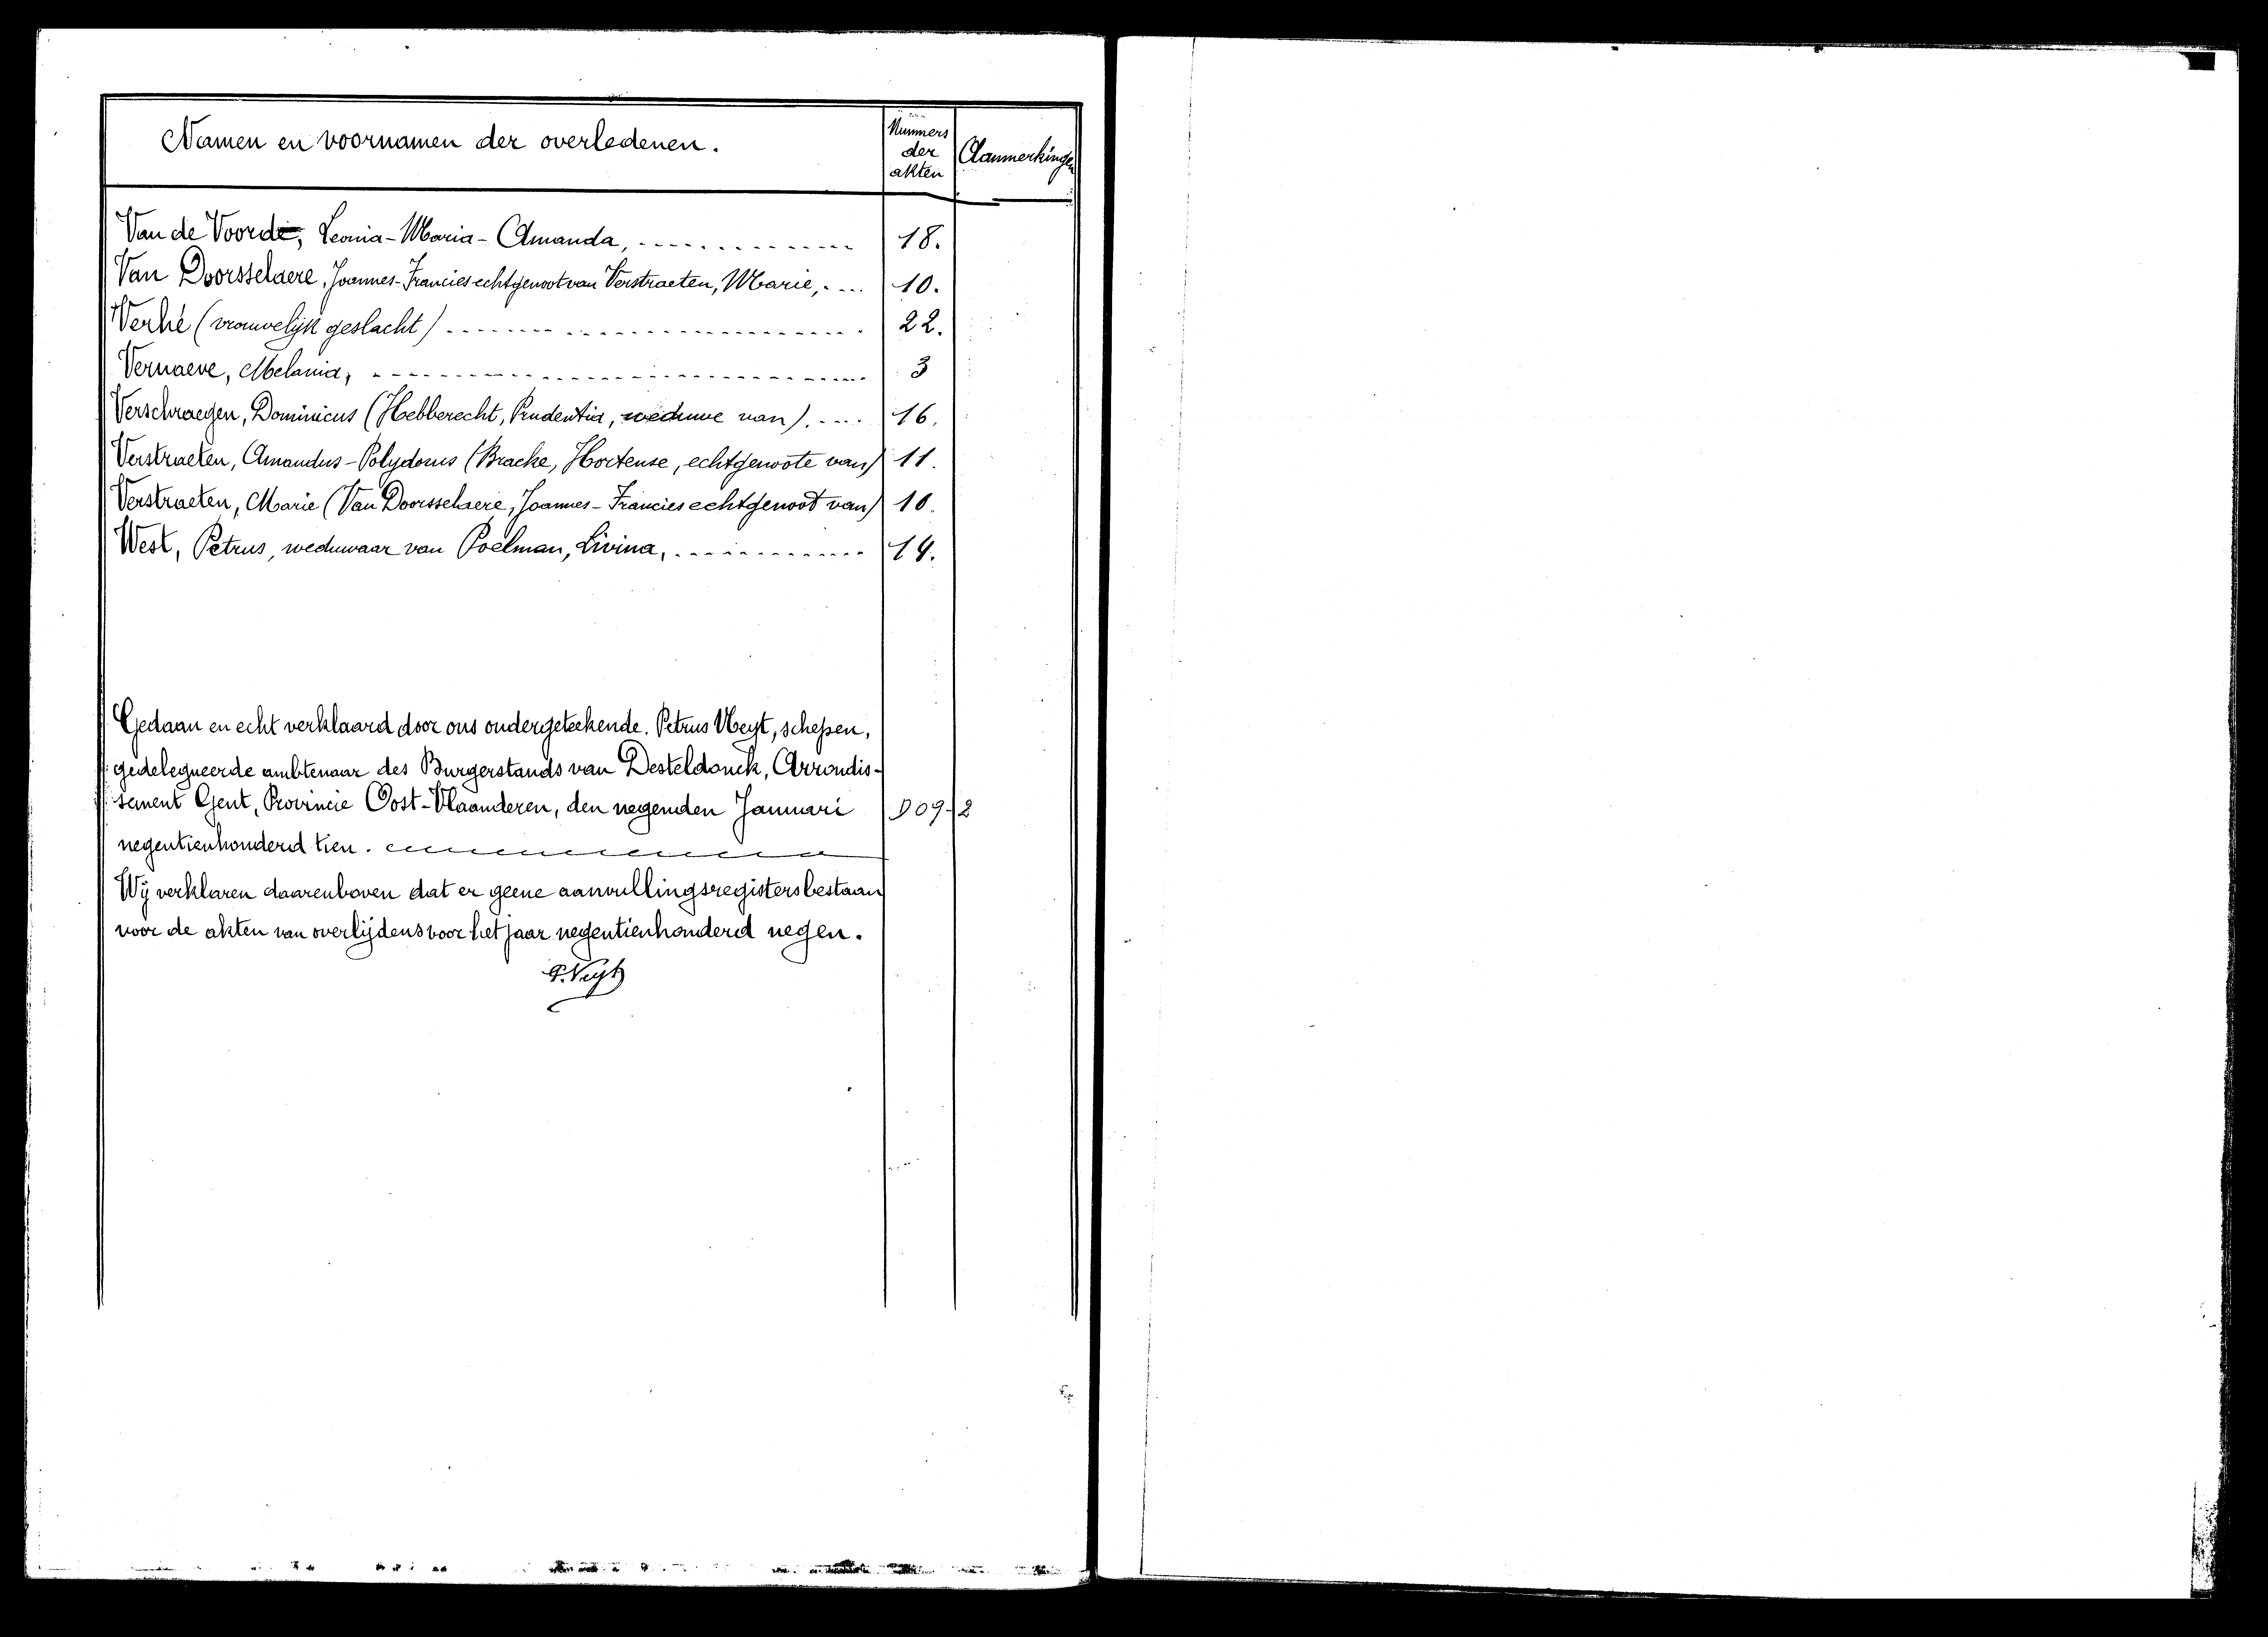 Namen en voornamen der overledenen.
Nummers der akten
Aanmerkingen
Van de Voorde, Leonia-Maria-Amanda, 18.
Van Doorsselaere, Joannes-Francies echtgenoot van Verstraeten, Marie, 10.
Verhé (vrouwelijk geslacht) 22.
Vernaeve, Melania, 3
Verschraegen, Dominicus (Hebberecht, Prudentia, weduwe van). 16.
Verstraeten, Amandus-Polydorus (Bracke, Hortense, echtgenoote van) 11.
Verstraeten, Marie (Van Doorsselaere, Joannes-Francies echtgenoot van) 10.
West, Petrus, weduwaar van Poelman, Livina, 14.
Gedaan en echt verklaard door ons ondergeteekende. Petrus Veyt, schepen,
gedelegueerde ambtenaar des Burgerstands van Desteldonck, Arrondis-
sement Gent, Provincie Oost-Vlaanderen, den negenden Januari
D09-2
negentienhonderd tien.
Wij verklaren daarenboven dat er geene aanvullingsregisters bestaan
voor de akten van overlijdens voor het jaar negentienhonderd negen.
P. Veyt